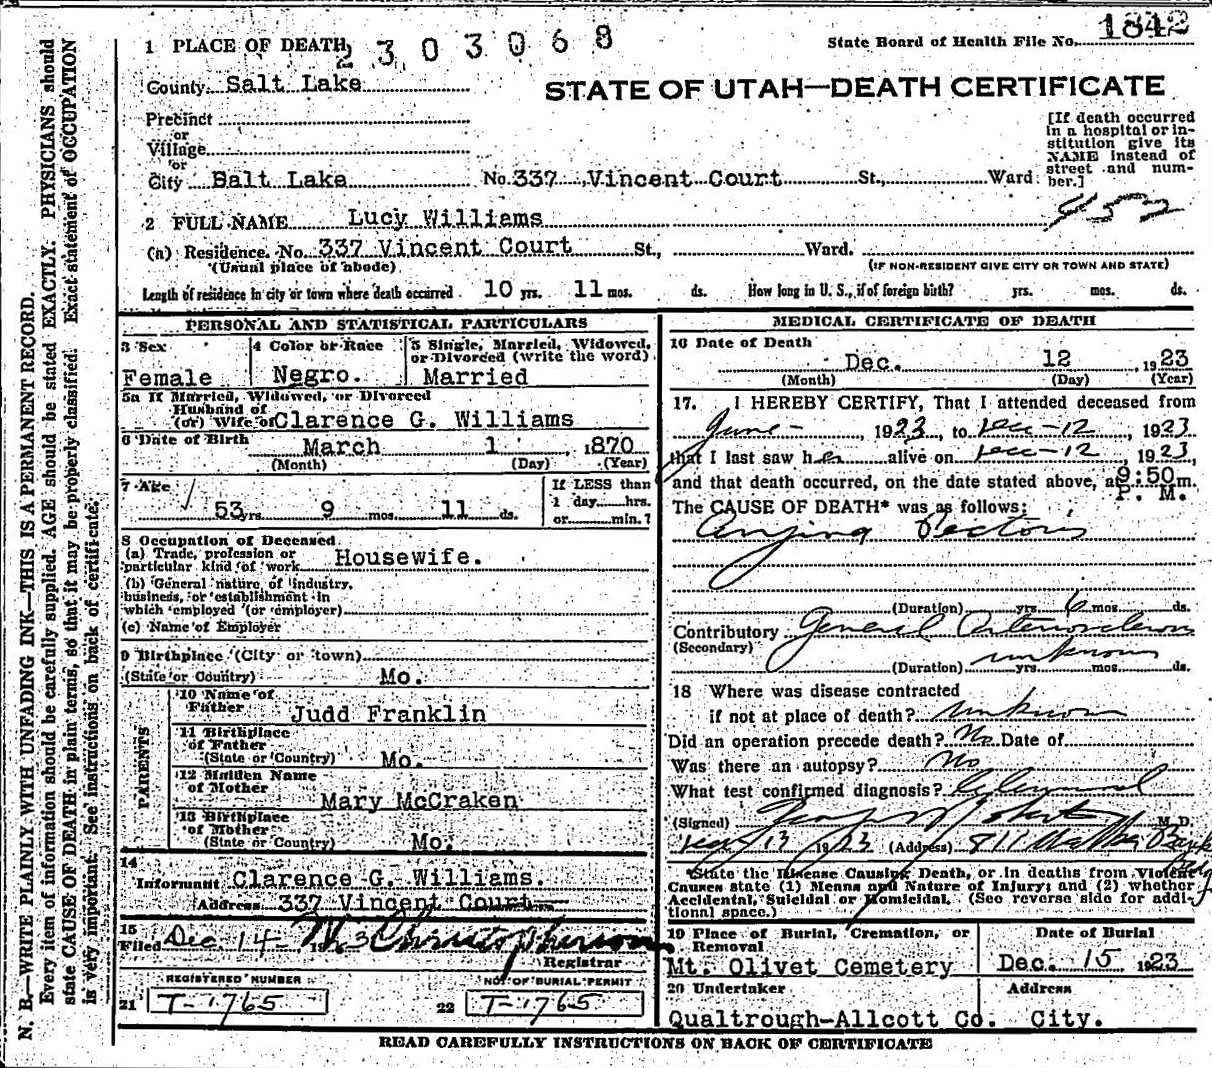 1 PLACE OF DEATH 2303068 State Board of Health File No. 1842
County Salt Lake
STATE OF UTAH—DEATH CERTIFICATE
Precinct
or
Village
or
City Salt Lake No. 337 Vincent Court St., Ward
[If death occurred
in a hospital or in-
stitution give its
NAME instead of
street and num-
ber.]
452
2 FULL NAME Lucy Williams
(a) Residence. No. 337 Vincent Court St., Ward.
(Usual place of abode) (IF NON-RESIDENT GIVE CITY OR TOWN AND STATE)
Length of residence in city or town where death occurred 10 yrs. 11 mos. ds. How long in U. S., if of foreign birth? yrs. mos. ds.
PERSONAL AND STATISTICAL PARTICULARS
3 Sex
Female
4 Color or Race
Negro.
5 Single, Married, Widowed,
or Divorced (write the word)
Married
5a If Married, Widowed, or Divorced
Husband of
(or) Wife of Clarence G. Williams
6 Date of Birth March 1 1870
(Month) (Day) (Year)
7 Age
53 yrs. 9 mos. 11 ds.
If LESS than
1 day hrs.
or min.?
8 Occupation of Deceased
(a) Trade, profession or
particular kind of work Housewife.
(b) General nature of industry,
business, or establishment in
which employed (or employer)
(c) Name of Employer
9 Birthplace (City or town)
(State or Country) Mo.
PARENTS
10 Name of
Father Judd Franklin
11 Birthplace
of Father
(State or Country) Mo.
12 Maiden Name
of Mother
Mary McCraken
13 Birthplace
of Mother
(State or Country) Mo.
14
Informant Clarence G. Williams.
Address 337 Vincent Court
15
Filed Dec. 14 1923 Christopherson
Registrar
REGISTERED NUMBER NO. OF BURIAL PERMIT
21 T-1765 22 T-1765
MEDICAL CERTIFICATE OF DEATH
16 Date of Death
Dec. 12 1923
(Month) (Day) (Year)
17. I HEREBY CERTIFY, That I attended deceased from
June - , 1923, to Dec-12, 1923
that I last saw her alive on Dec-12, 1923,
and that death occurred, on the date stated above, at 9:50 m.
P. M.
The CAUSE OF DEATH* was as follows:
Angina Pectoris
(Duration) yrs. 6 mos. ds.
Contributory General Arteriosclerosis
(Secondary)
(Duration) unknown yrs. mos. ds.
18 Where was disease contracted
if not at place of death? unknown
Did an operation precede death? No Date of
Was there an autopsy? No
What test confirmed diagnosis?
(Signed) M. D.
13 1923 (Address) 811 Walker Bank
*State the Disease Causing Death, or in deaths from Violent
Causes state (1) Means and Nature of Injury; and (2) whether
Accidental, Suicidal or Homicidal. (See reverse side for addi-
tional space.)
19 Place of Burial, Cremation, or
Removal
Mt. Olivet Cemetery
Date of Burial
Dec. 15 1923
20 Undertaker Address
Qualtrough-Allcott Co. City.
READ CAREFULLY INSTRUCTIONS ON BACK OF CERTIFICATE
N. B.—WRITE PLAINLY WITH UNFADING INK—THIS IS A PERMANENT RECORD.
Every item of information should be carefully supplied. AGE should be stated EXACTLY. PHYSICIANS should
state CAUSE OF DEATH in plain terms, so that it may be properly classified. Exact statement of OCCUPATION
is very important. See instructions on back of certificate.